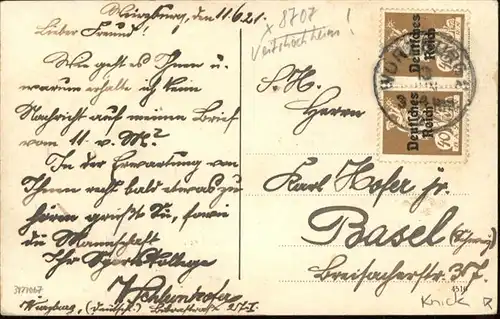 Würzburg, den 11/6.21.
Lieber Freund!
Wie geht es Ihnen u.
warum erhalte ich kein
Nachricht auf meinen Brief
vom 11. v. M?
In der Erwartung von
Ihnen recht bald etwas zu
hören grüßt Sie, sowie
die Mannschaft
Ihr Sportskollege
Würzburg, (Deutschl.)
3171067
x 8707
Veitshöchheim!
Deutsches
Reich
Deutsches
Reich
40
S. H.
Herrn
Karl Hofer jr.
Basel (Schweiz)
Breisacherstr. 37.
4516
Knick